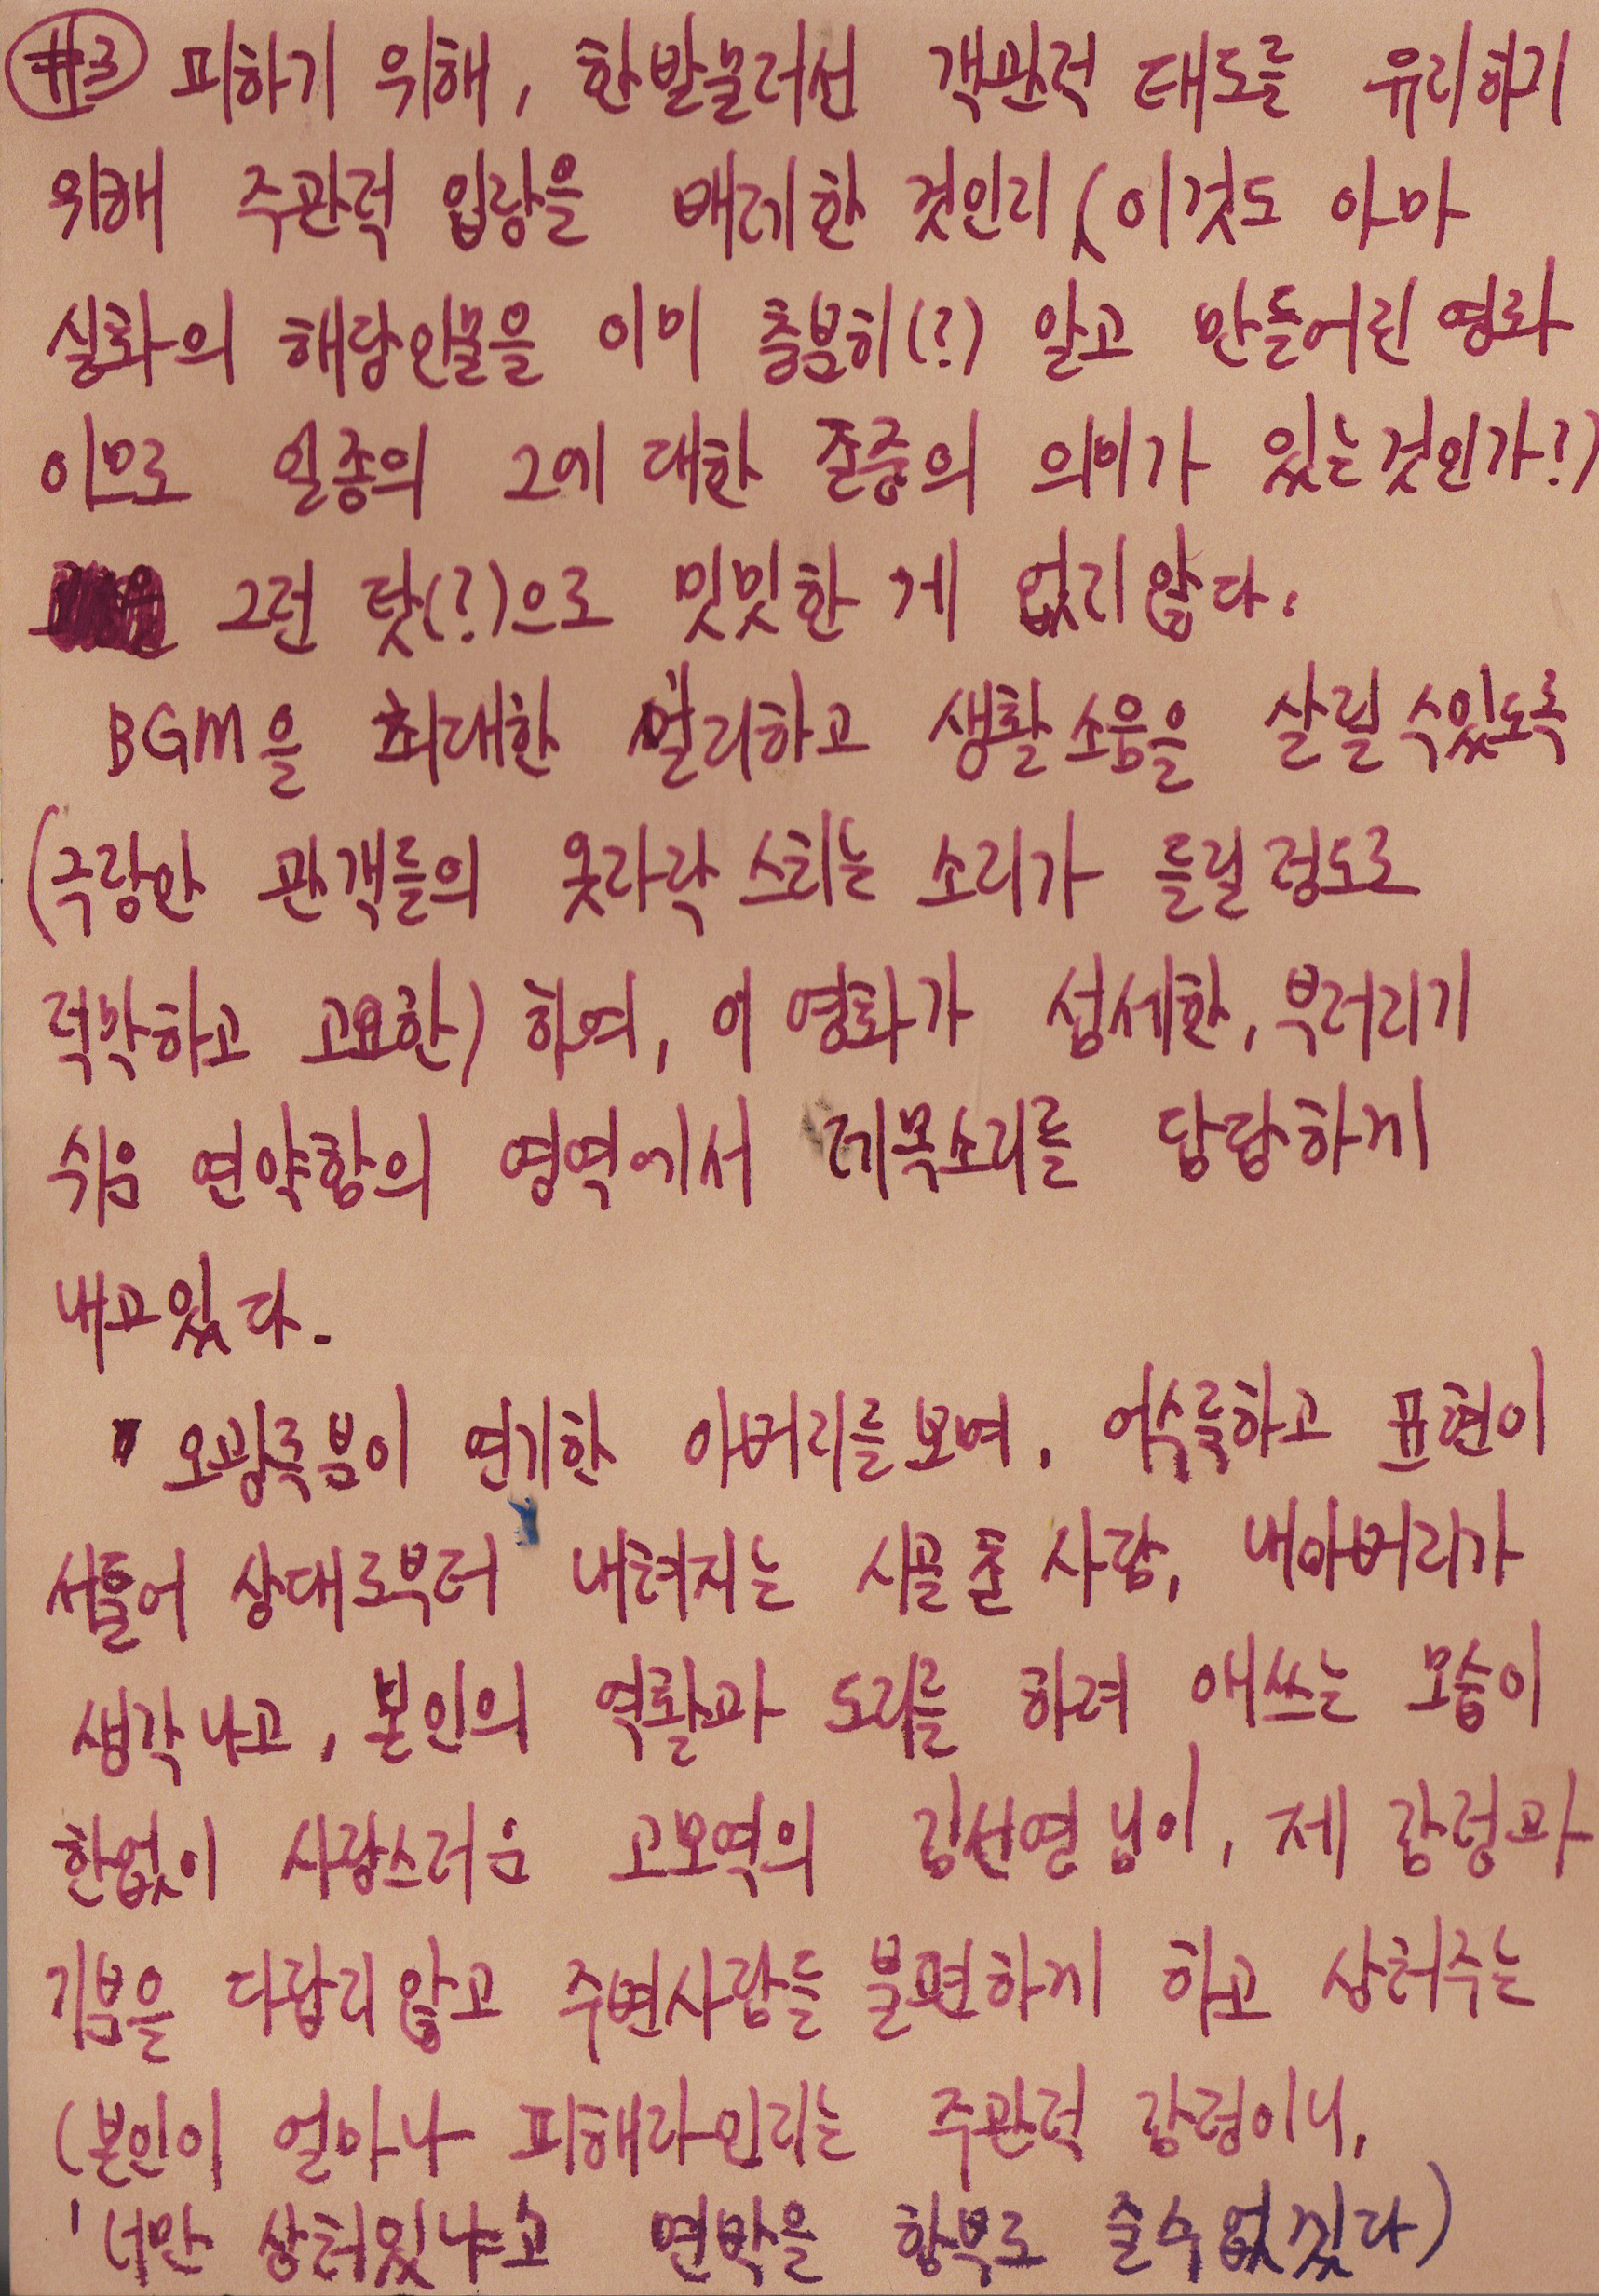 #3 피하기 위해, 한발물러선 객관적 태도를 유지하기
위해 주관적 입장을 배제한 것인지 (이것도 아마
실화의 해당인물을 이미 충분히(?) 알고 만들어진 영화
이므로 일종의 그에 대한 존중의 의미가 있는것인가?)
그런 탓(?)으로 밋밋한 게 없지않다.
BGM을 최대한 멀리하고 생활소음을 살릴 수있도록
(극장안 관객들의 옷자락 스치는 소리가 들릴 정도로
적막하고 고요한) 하여, 이 영화가 섬세한, 부러지기
쉬운 연약함의 영역에서 제목소리를 담담하게
내고있다.
오광록분이 연기한 아버지를 보며, 어수룩하고 표현이
서툴어 상대로부터 내쳐지는 시골촌사람, 내아버지가
생각나고, 본인의 역할과 도리를 하려 애쓰는 모습이
한없이 사랑스러운 고모역의 김선영님이, 제 감정과
기분을 다잡지 않고 주변사람들 불편하게 하고 상처주는
(본인이 얼마나 피해자인지는 주관적 감정이니,
'너만 상처있냐'고 면박을 함부로 줄수없겠다)